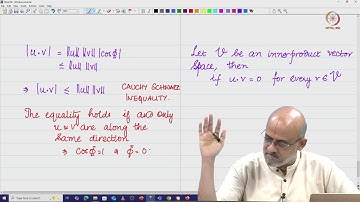 |u•v| = ||u|| ||v|| |cosφ|
≤ ||u|| ||v||
⇒ |u•v| ≤ ||u|| ||v||
CAUCHY SCHWARZ
INEQUALITY.
The equality holds if and only
u & v are along the
same direction
⇒ cosφ=1 & φ=0
Let V be an inner-product vector
space, then
if u.v=0 for every v∈V